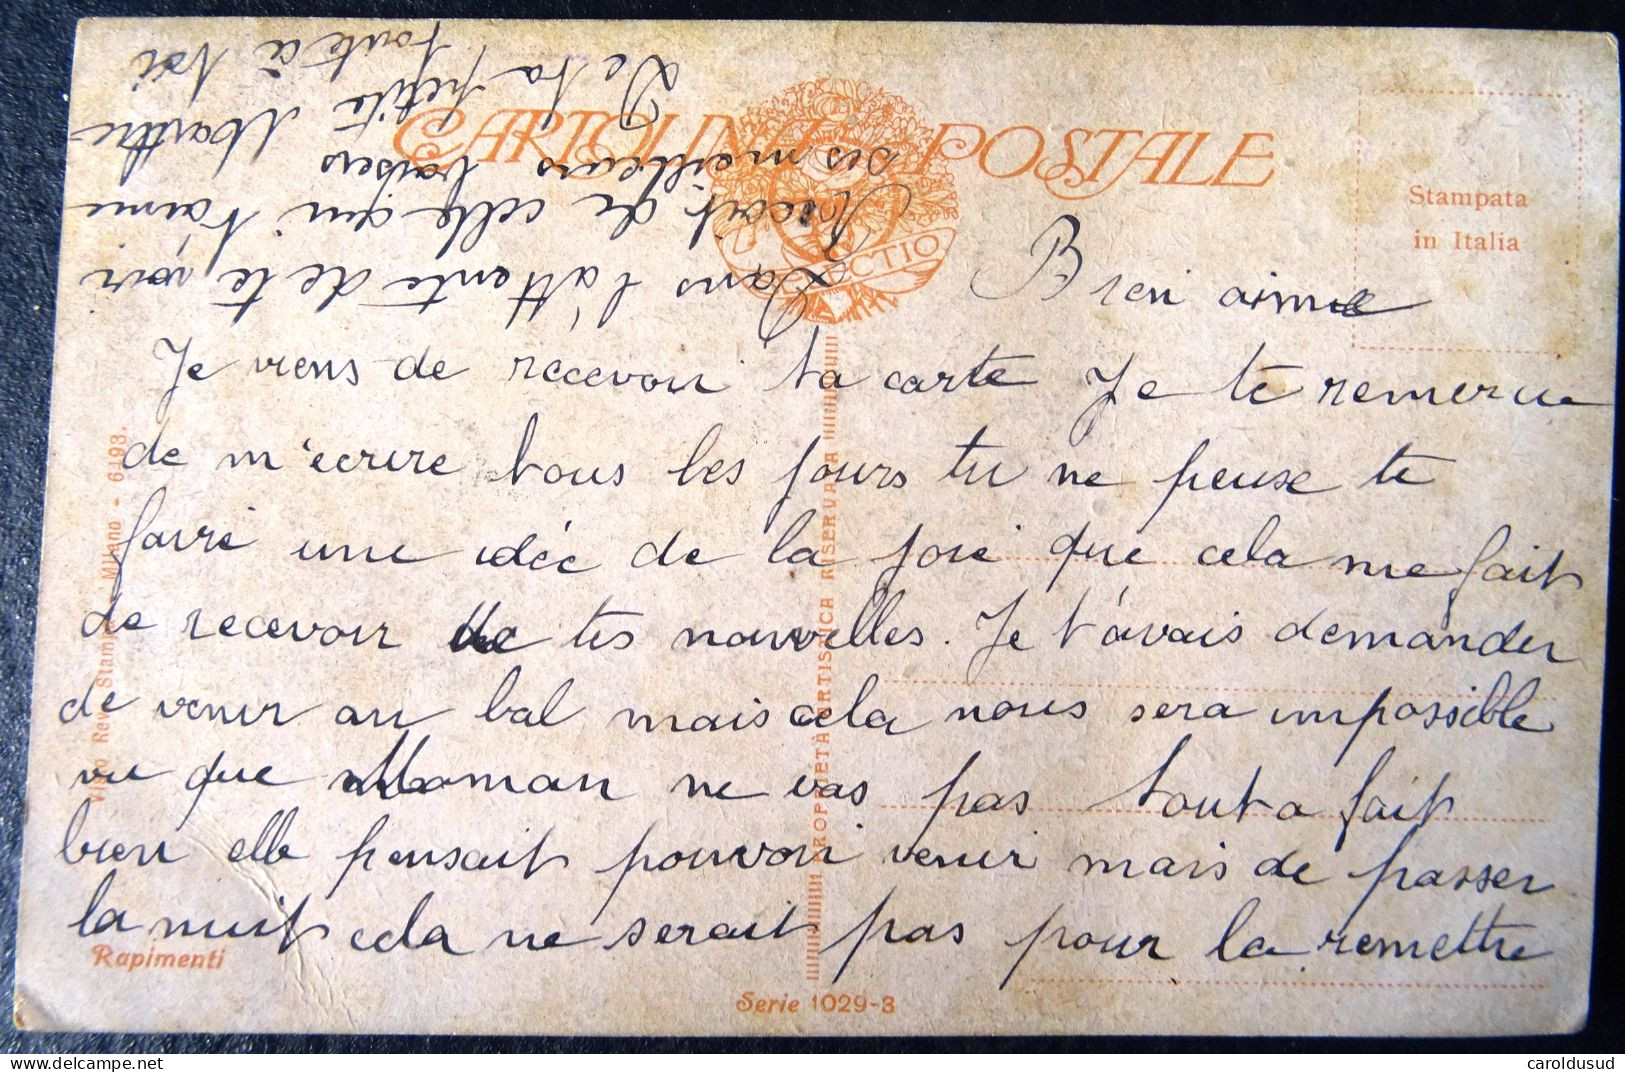 CARTOLINA POSTALE
Stampata
in Italia
Bien aimé
Je viens de recevoir ta carte Je te remercie
de m'ecrire tous les jours tu ne peuse te
faire une idée de la joie que cela me fait
de recevoir de tes nouvelles. Je t'avais demander
de venir au bal mais cela nous sera impossible
vu que Maman ne vas pas tout a fait
bien elle pensait pouvoir venir mais de passer
la nuit cela ne serait pas pour la remettre
Dans l'attente de te voir
Reçoit de celle qui t'aime
ses meilleurs baisers
De ta petite Marthe
toute à toi
Visto Rev. Stampa - Milano - 6193.
PROPRIETÀ ARTISTICA RISERVATA
Rapimenti
Serie 1029-3
caroldusud